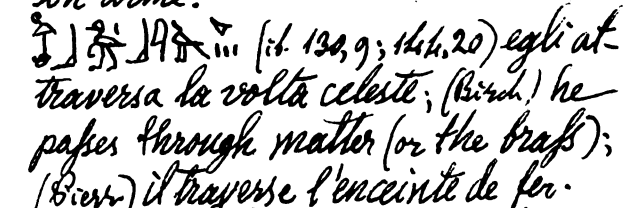 son arme.
(ib. 130, 9; 144, 20) egli at-
traversa la volta celeste; (Birch) he
passes through matter (or the brass);
(Pierr) il traverse l'enceinte de fer.